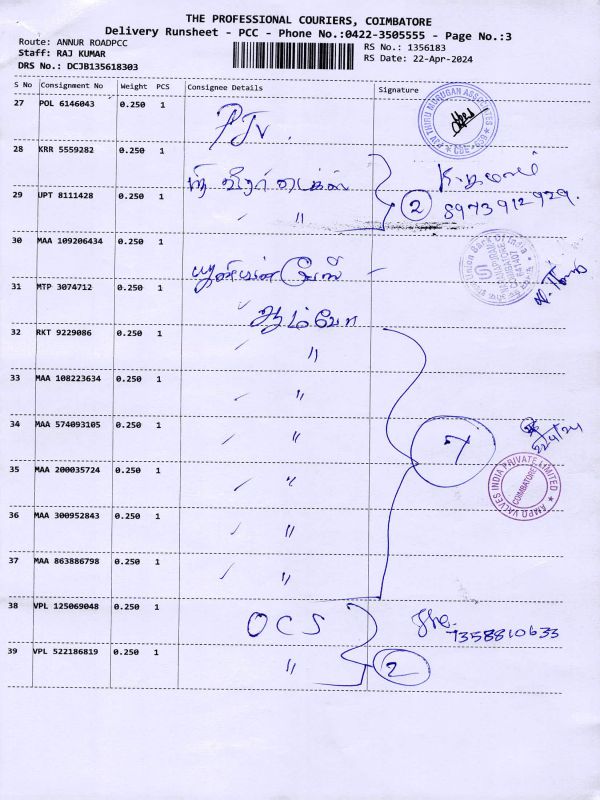 THE PROFESSIONAL COURIERS, COIMBATORE
Delivery Runsheet - PCC - Phone No.:0422-3505555 - Page No.:3
Route: ANNUR ROADPCC
RS No.: 1356183
Staff: RAJ KUMAR
RS Date: 22-Apr-2024
DRS No.: DCJB135618303
S No Consignment No Weight PCS Consignee Details Signature
27 POL 6146043 0.250 1 PJV.
28 KRR 5559282 0.250 1
29 UPT 8111428 0.250 1 〃 2 8973912929.
30 MAA 109206434 0.250 1
Union Bank of India
31 MTP 3074712 0.250 1
32 RKT 9229086 0.250 1 〃
33 MAA 108223634 0.250 1 〃
34 MAA 574093105 0.250 1 〃 7 22/4/24
35 MAA 200035724 0.250 1 〃
AMPO VALVES INDIA PRIVATE LIMITED
COIMBATORE
36 MAA 300952843 0.250 1 〃
37 MAA 863886798 0.250 1 〃
38 VPL 125069048 0.250 1 OCS 7358810633
39 VPL 522186819 0.250 1 〃 2